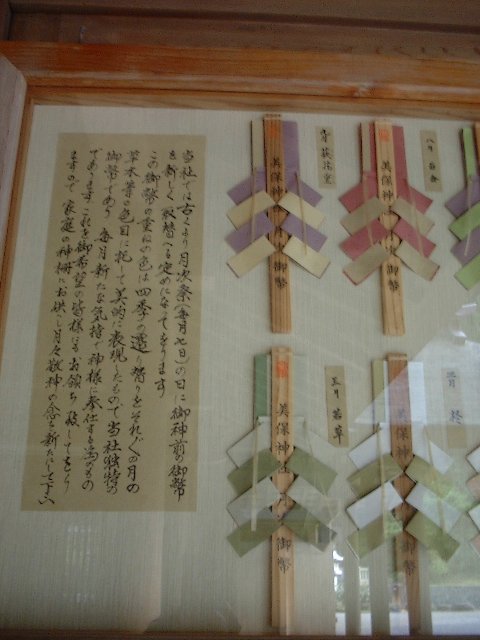 当社では古くより月次祭(毎月七日)の日に御神前の御幣
を新しく取替へる定めになってをります
この御幣の重ねの色は四季の遷り替りをそれぞれの月の
草木等の色目に托して美的に表現したもので当社独特の
御幣であり 毎月新たな気持で神様に奉仕する為のもの
であります これを御希望の皆様にもお頒ち致してをり
ますので 家庭の神棚にお供へし月々敬神の念を新たにして下さい
九月 萩
美保神
御幣
八月
美保神
御幣
三月 若草
美保神
御幣
二月
美保神
御幣